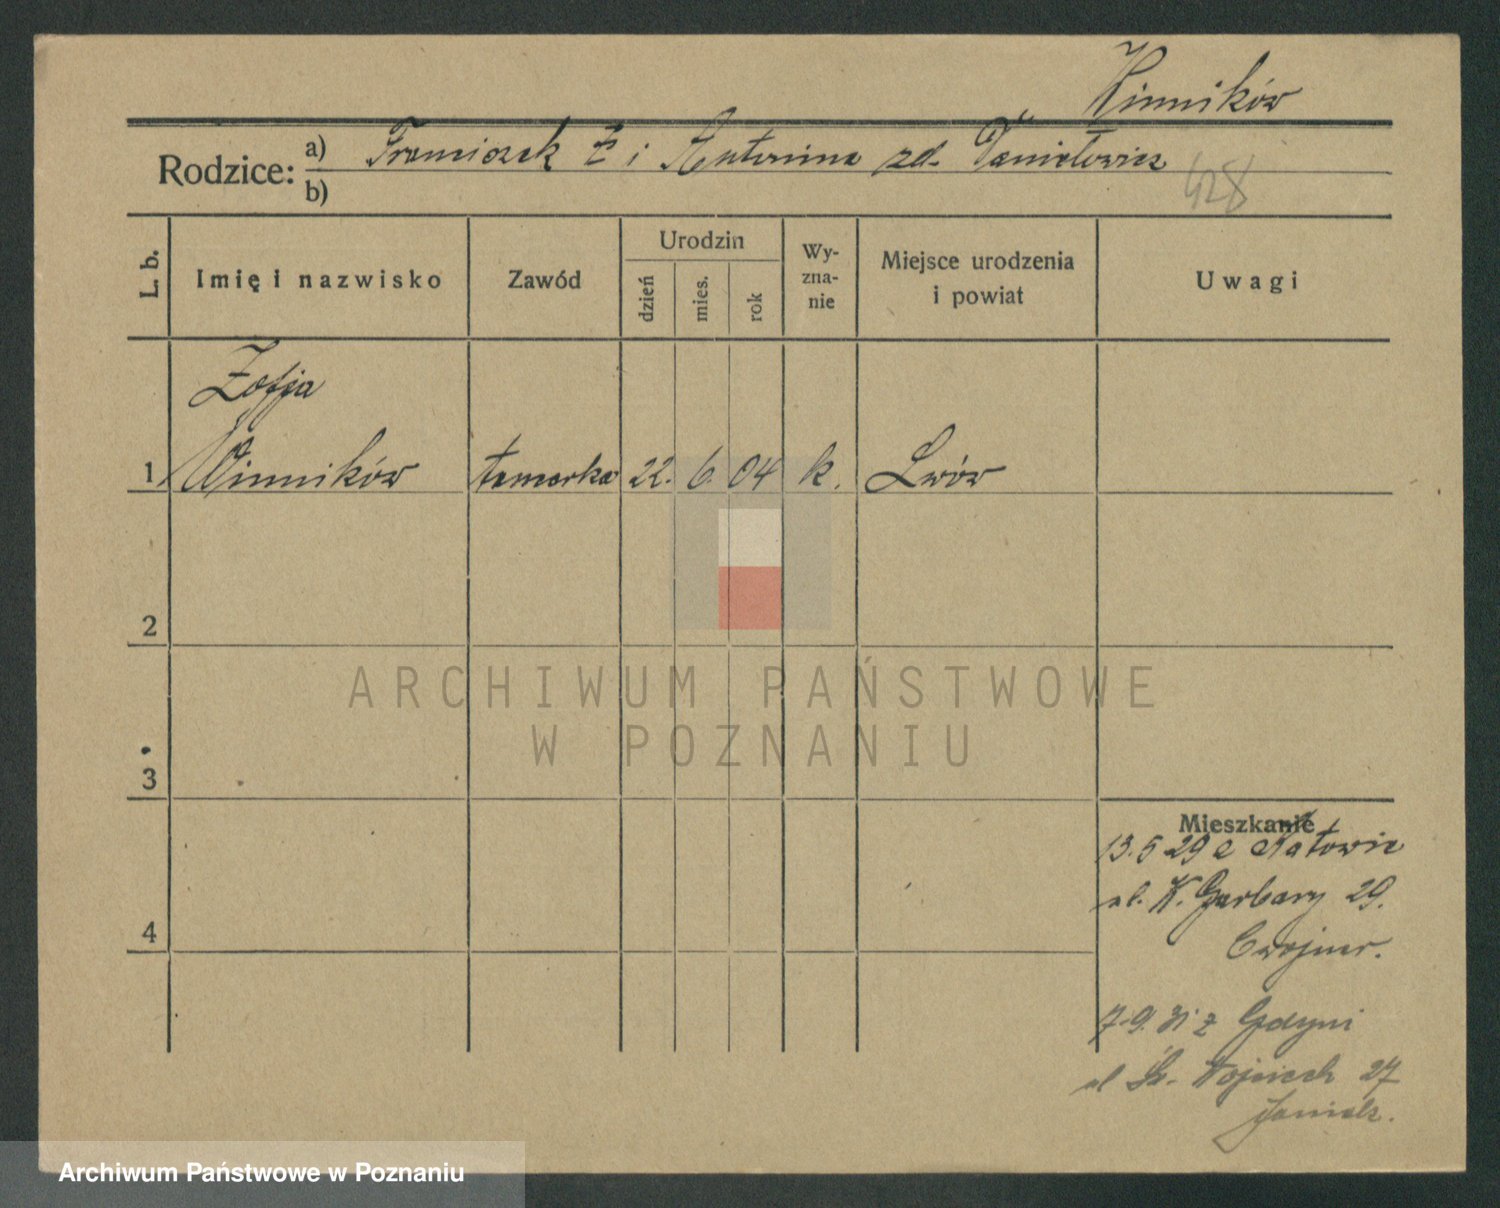 Winników
Rodzice: a) Franciszek Ł i Antonina zd. Daniełowicz
b)
428
L. b.
Imię i nazwisko
Zawód
Urodzin
dzień
mies.
rok
Wy-
zna-
nie
Miejsce urodzenia
i powiat
Uwagi
Zofja
1 Winników 22. 6. 04 k. Lwów
2
3
4
Mieszkanie
13.5 29 z Katowic
ul. W. Garbary 29.
7.9. 31 z Gdyni
ul Św. Wojciech 27
ARCHIWUM PAŃSTWOWE
W POZNANIU
Archiwum Państwowe w Poznaniu